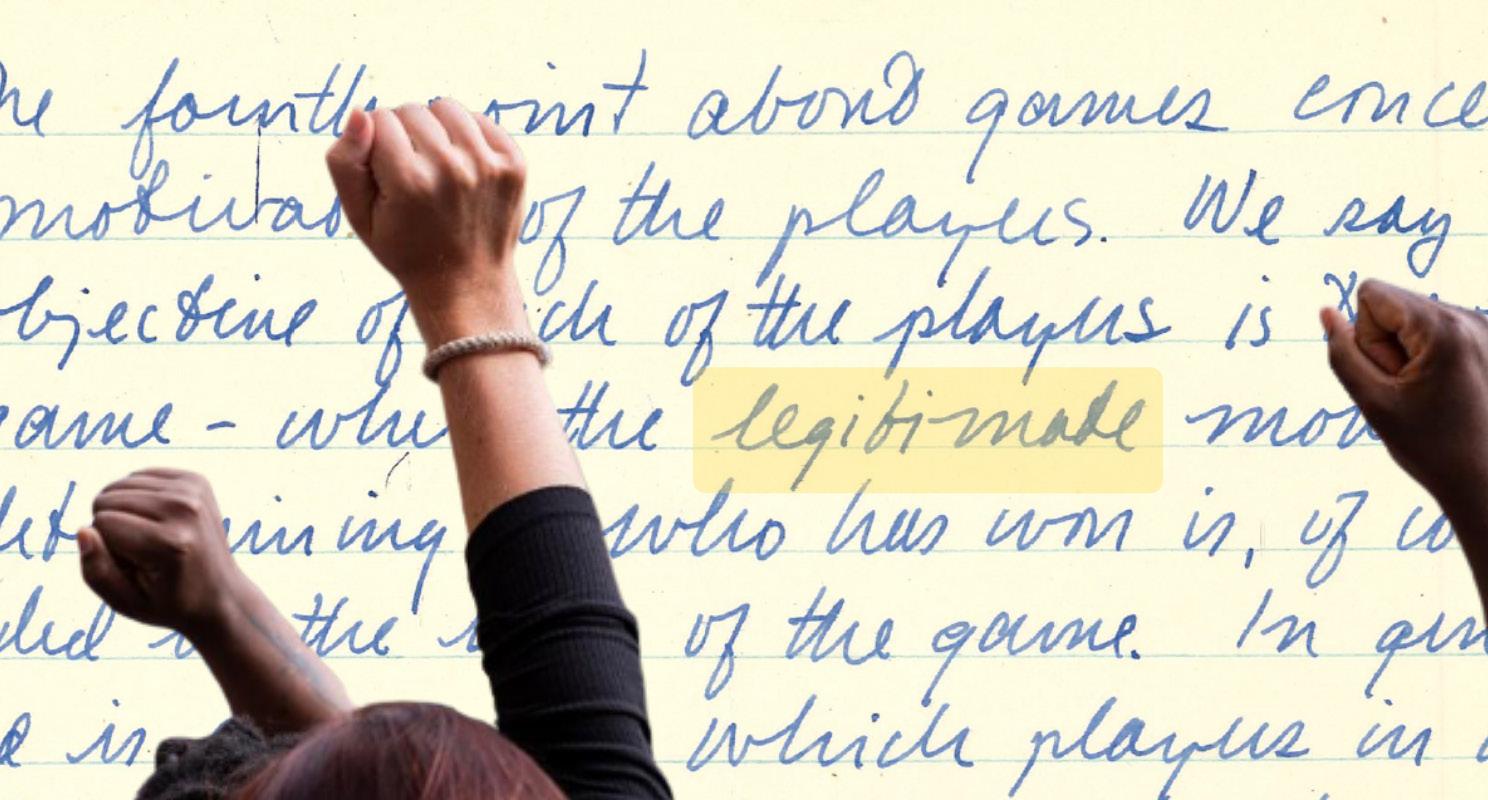 he fourth point about games conce
motivat of the players. We say
bjective of ch of the players is
ame - whe the legitimate mov
det ining who has won is, of co
ded the of the game. In gen
e is which players in